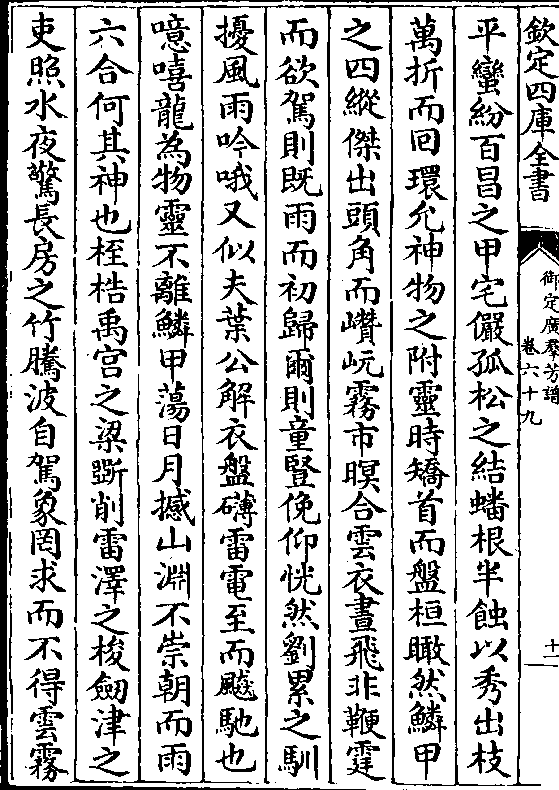 欽定四庫全書
御定廣羣芳譜
卷六十九
十一
平蠻紛百昌之甲宅儼孤松之結蟠根半蝕以秀出枝
萬折而回環允神物之附靈時矯首而盤桓瞰然鱗甲
之四縱傑出頭角而巑岏霧市暝合雲衣晝飛非鞭霆
而欲駕則既雨而初歸爾則童豎俛仰恍然劉累之馴
擾風雨吟哦又似夫葉公解衣盤礴雷電至而飈馳也
噫嘻龍為物靈不離鱗甲蕩日月撼山淵不崇朝而雨
六合何其神也桎梏禹宫之梁斲削雷澤之梭劒津之
吏照水夜驚長房之竹騰波自駕象罔求而不得雲霧